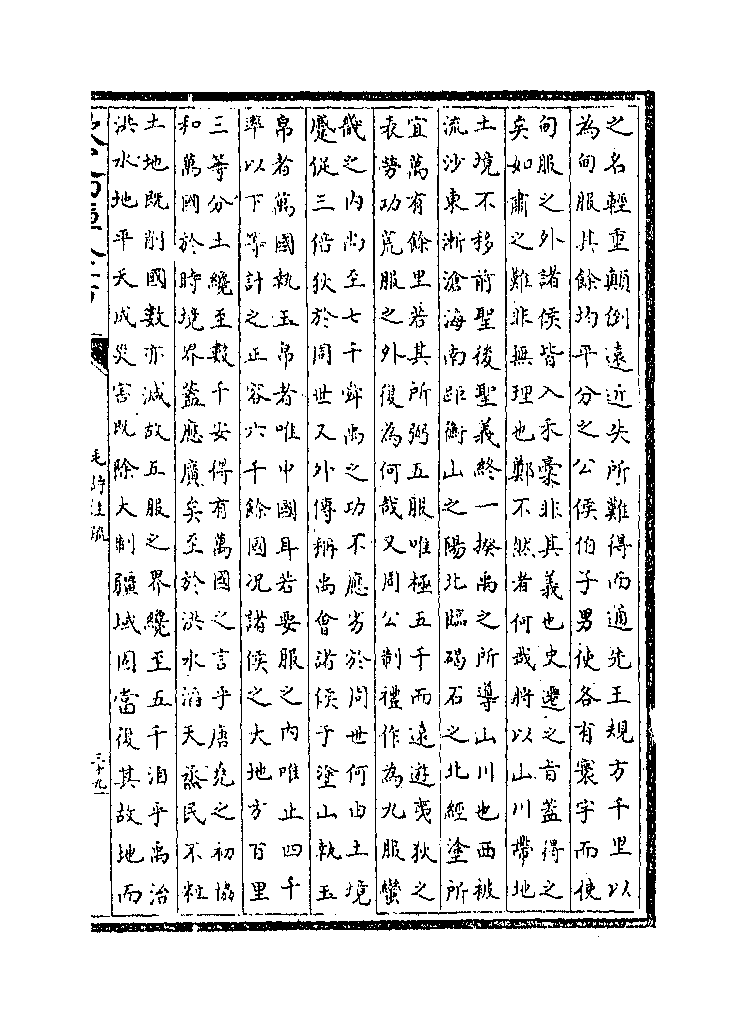 之名輕重顛倒遠近失所難得而通先王規方千里以
為甸服其餘均平分之公侯伯子男使各有寰宇而使
甸服之外諸侯皆入禾稾非其義也史遷之旨蓋得之
矣如肅之難非無理也鄭不然者何哉將以山川帶地
土境不移前聖後聖義終一揆禹之所導山川也西被
流沙東漸滄海南距衡山之陽北臨碣石之北經塗所
宜萬有餘里若其所弼五服唯極五千而遠遊夷狄之
表勞功荒服之外復為何哉又周公制禮作為九服蠻
畿之内尚至七千禹之功不應劣於周世何由土境
蹙促三倍狄於周世又外傳稱禹會諸侯于塗山執玉
帛者萬國執玉帛者唯中國耳若要服之内唯止四千
率以下等計之正容六千餘國况諸侯之大地方百里
三等分土纔至數千安得有萬國之言乎唐堯之初協
和萬國於時境界蓋應廣矣至於洪水滔天烝民不粒
土地既削國數亦減故五服之界纔至五千洎乎禹治
洪水地平天成災害既除大制疆域固當復其故地而
毛詩注疏
三十九